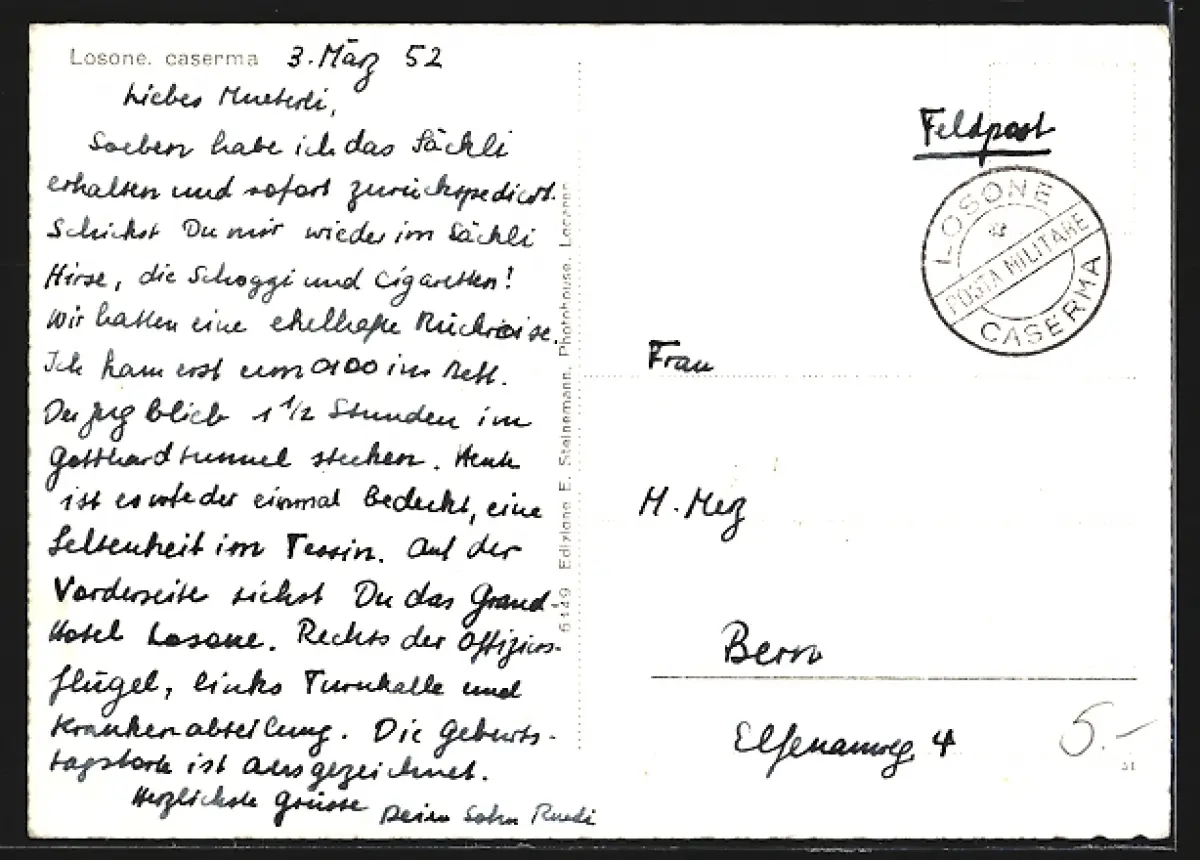 Losone. caserma 3. März 52
Liebes Mueterli,
Soeben habe ich das Säckli
erhalten und sofort zurückspediert.
Schickst Du mir wieder im Säckli
Hirse, die Schoggi und Cigaretten!
Wir hatten eine ekelhafte Rückreise.
Ich kam erst um 0100 ins Bett.
Der Zug blieb 1 1/2 Stunden im
Gotthardtunnel stecken. Heute
ist es wieder einmal bedeckt, eine
Seltenheit im Tessin. Auf der
Vorderseite siehst Du das Grand-
Hotel Losone. Rechts der Offiziers-
flügel, links Turnhalle und
Krankenabteilung. Die Geburts-
tagstorte ist ausgezeichnet.
Herzlichste Grüsse Dein Sohn Ruedi
6149 Edizione E. Steinemann, Photohouse, Locarno
Feldpost
LOSONE
POSTA MILITARE
CASERMA
Frau
M. Merz
Bern
Elfenauweg 4
5.-